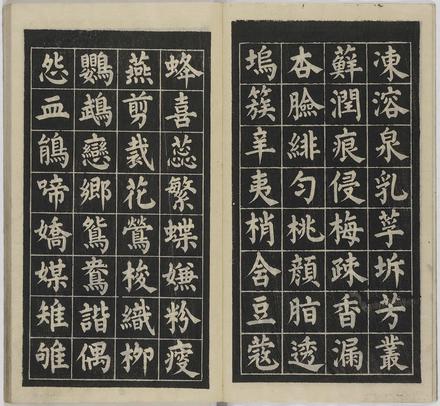 凍溶泉乳莩坼芳叢
蘚潤痕侵梅疎香漏
杏臉緋勻桃顔脂透
塢簇辛夷梢舍豆蔻
蜂喜蕊繁蝶嫌粉瘦
燕剪裁花鶯梭織柳
鸚鵡戀鄉鴛鴦諧偶
怨血鵑啼嬌媒雉雊